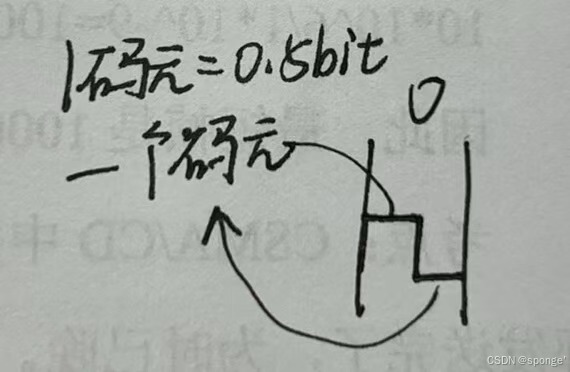 1码元=0.5bit
0
一个码元
CSDN @sponge'